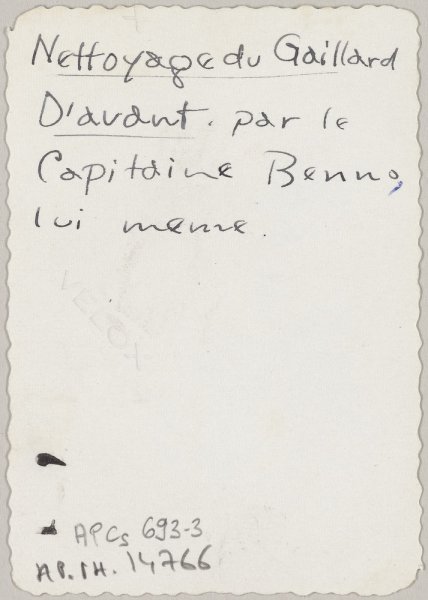 Nettoyage du Gaillard
D'avant. par le
Capitaine Benno,
lui meme.
VELOX
APCs 693-3
AP.PH. 14766